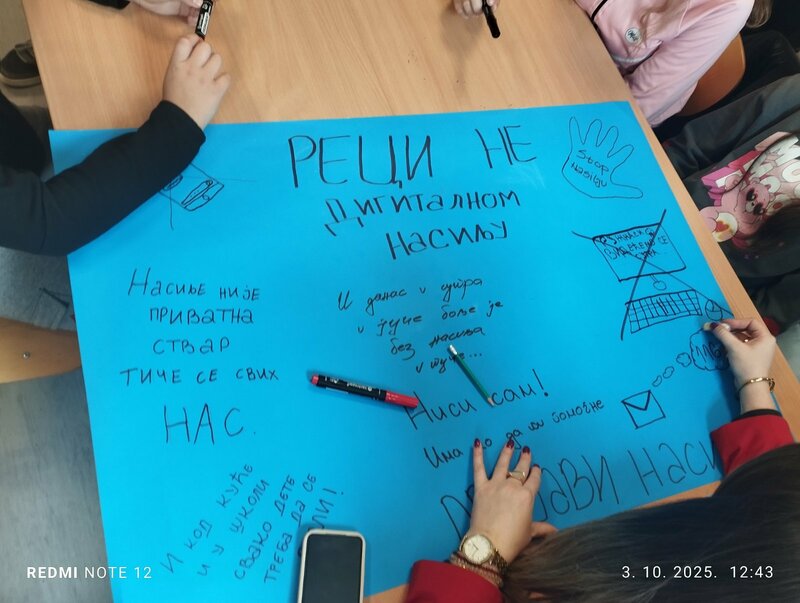 РЕЦИ НЕ
ДИГИТАЛНОМ
НАСИЉУ
Stop
nasilju
НАСИЉЕ НИЈЕ
ПРИВАТНА
СТВАР
ТИЧЕ СЕ СВИХ
НАС.
И данас и сутра
и јуче боље је
без насиља
и туче...
Ниси сам!
Има ко да ти помогне
НАСИ
И КОД КУЋЕ
И У ШКОЛИ
СВАКО ДЕТЕ
ТРЕБА ДА СЕ
REDMI NOTE 12
3. 10. 2025. 12:43